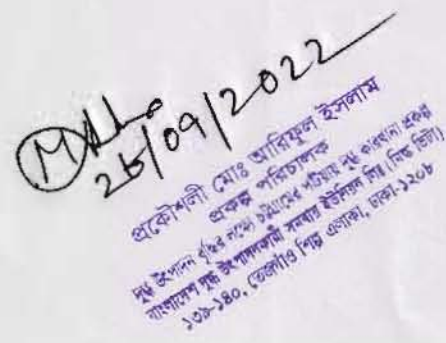 26/09/2022
প্রকৌশলী মোঃ আরিফুল ইসলাম
প্রকল্প পরিচালক
দুগ্ধ উৎপাদন বৃদ্ধির লক্ষ্যে চট্টগ্রামের পটিয়ায় দুগ্ধ কারখানা প্রকল্প
বাংলাদেশ দুগ্ধ উৎপাদনকারী সমবায় ইউনিয়ন লিঃ (মিল্ক ভিটা)
১৩৯-১৪০, তেজগাঁও শিল্প এলাকা, ঢাকা-১২০৮